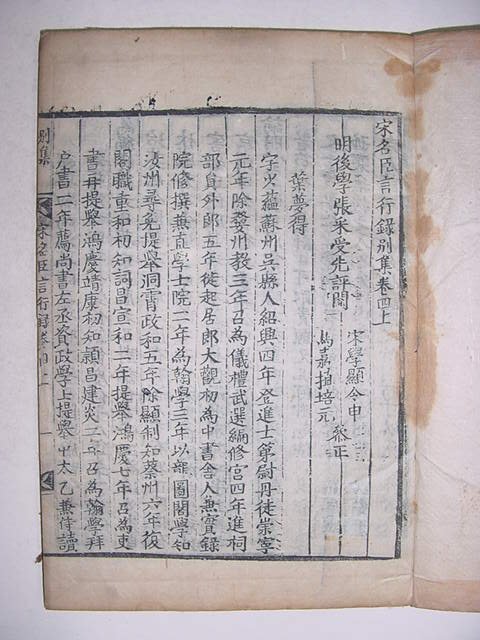 宋名臣言行錄別集卷四上
明後學張采受先評閱
宋學顯令申
馬嘉植培元
參正
葉夢得
字少蘊蘇州吳縣人紹興四年登進士第尉丹徒崇寧
元年除婺州教三年召為儀禮武選編修官四年進祠
部員外郎五年徙起居郎大觀初為中書舍人兼實錄
院修撰兼直學士院二年為翰學三年以龍圖閣學知
汝州尋免提舉洞霄政和五年除顯制知蔡州六年復
閣職重和初知潁昌宣和二年提舉鴻慶七年召為吏
書再提舉鴻慶靖康初知潁昌建炎二年召為翰學拜
戶書二年薦尚書左丞資政學士提舉中太乙兼侍讀
別集
宋名臣言行錄卷四上